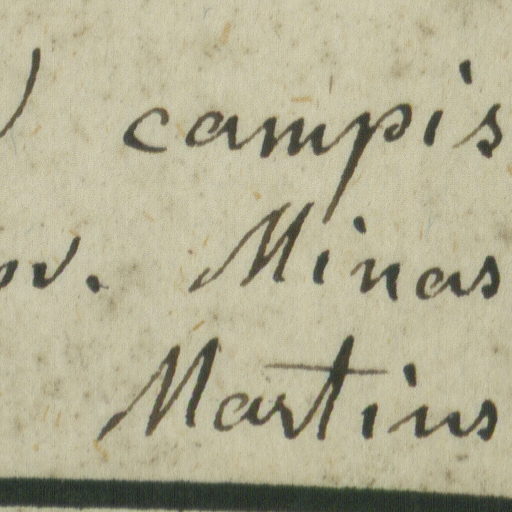 campis
ov. Minas
Martius